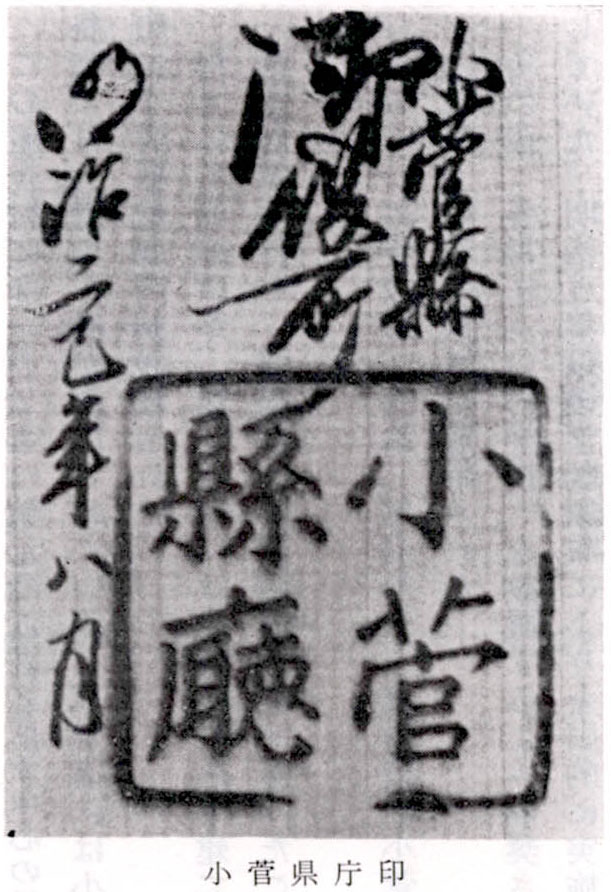 小菅縣
御役所
明治二巳年八月
小菅
縣廳
小菅県庁印